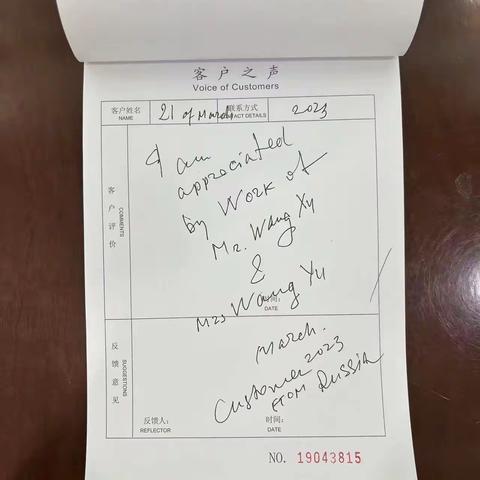 客户之声
Voice of Customers
客户姓名 21 of March 联系方式 2023
NAME CONTACT DETAILS
I am
appreciated
by Work of
Mr. Wang Xu
&
Mrs Wang Yu
客户评价
COMMENTS
时间:
DATE
March.
Customer 2023
from Russia
反馈意见
SUGGESTIONS
反馈人: 时间:
REFLECTOR DATE
NO. 19043815